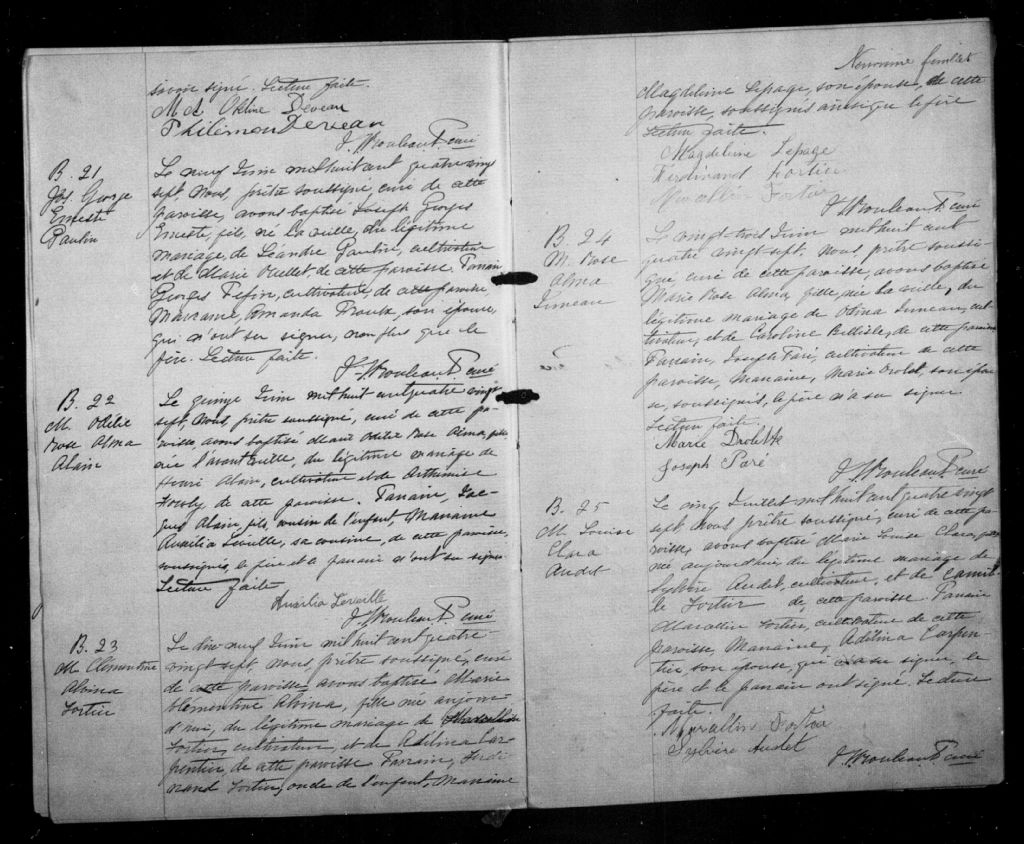 savoir signé. Lecture faite.
M. A. Deveau
Philémon Deveau
J. Rouleau Ptre curé
B. 21
Jos. George
Ernest
Paulin
Le neuf Juin mil huit cent quatre vingt
sept, Nous, prêtre soussigné, curé de cette
paroisse, avons baptisé Joseph Georges
Erneste, fils, né la veille, du légitime
mariage, de Léandre Paulin, cultivateur
et de Marie Ouellet de cette paroisse. Parrain
Georges Pepin, cultivateur, de cette paroisse,
Marraine, Amanda son épouse,
qui n'ont su signer, non plus que le
père. Lecture faite.
J. Rouleau Ptre curé
B. 22
M. Odélie
Rose Alma
Alain
Le quinze Juin mil huit cent quatre vingt
sept, Nous, prêtre soussigné, curé de cette pa-
roisse, avons baptisé Marie Odélie Rose Alma, fille,
née l'avant veille, du légitime mariage de
Henri Alain, cultivateur et de Arthémise
de cette paroisse. Parrain, Jac-
ques Alain, fils, cousin de l'enfant, Marraine
Auxilia Léveillé, sa cousine, de cette paroisse,
soussignée, le père et le parrain n'ont su signer
Lecture faite
Auxilia Leveille
J. Rouleau Ptre curé
B. 23
M. Clémentine
Alvina
Fortier
Le dix-neuf Juin mil huit cent quatre-
vingt-sept, Nous, prêtre soussigné, curé
de cette paroisse avons baptisé Marie
Clémentine Alvina, fille née aujour-
d'hui, du légitime mariage de
Fortier, cultivateur, et de Adélina Car-
pentier, de cette paroisse Parrain, Ferdi-
nand Fortier, oncle de l'enfant, Marraine
Neuvième feuillet
Magdeleine Lepage, son épouse, de cette
paroisse, soussignés ainsi que le père
Lecture faite.
Magdeleine Lepage
Ferdinand Fortier
Fortier
J. Rouleau Ptre curé
B. 24
M. Rose
Alma
Juneau
Le vingt-trois Juin mil huit cent
quatre vingt-sept, Nous, prêtre soussi-
gné curé de cette paroisse, avons baptisé
Marie Rose Alma, fille, née la veille, du
légitime mariage de Odina Juneau, cul-
tivateur, et de Caroline Bellisle, de cette paroisse
Parrain, Joseph Paré, cultivateur de cette
paroisse, Marraine, Marie Drolet, son épou-
se, soussignés, le père n'a su signer
Lecture faite.
Marie Drolette
Joseph Paré
J. Rouleau Ptre curé
B. 25
M. Louise
Clara
Audet
Le cinq Juillet mil huit cent quatre vingt
sept, Nous prêtre soussigné, curé de cette pa-
roisse, avons baptisé Marie Louise Clara,
née aujourd'hui du légitime mariage de
Sylvère Audet, cultivateur, et de Camil-
le Fortier de cette paroisse Parrain
Marcellin Fortier, cultivateur de cette
paroisse, Marraine, Adélina Carpen-
tier, son épouse, qui n'a su signer, le
père et le parrain ont signé. Lecture
faite.
Marcellin Fortier
Sylvère Audet
J. Rouleau Ptre curé